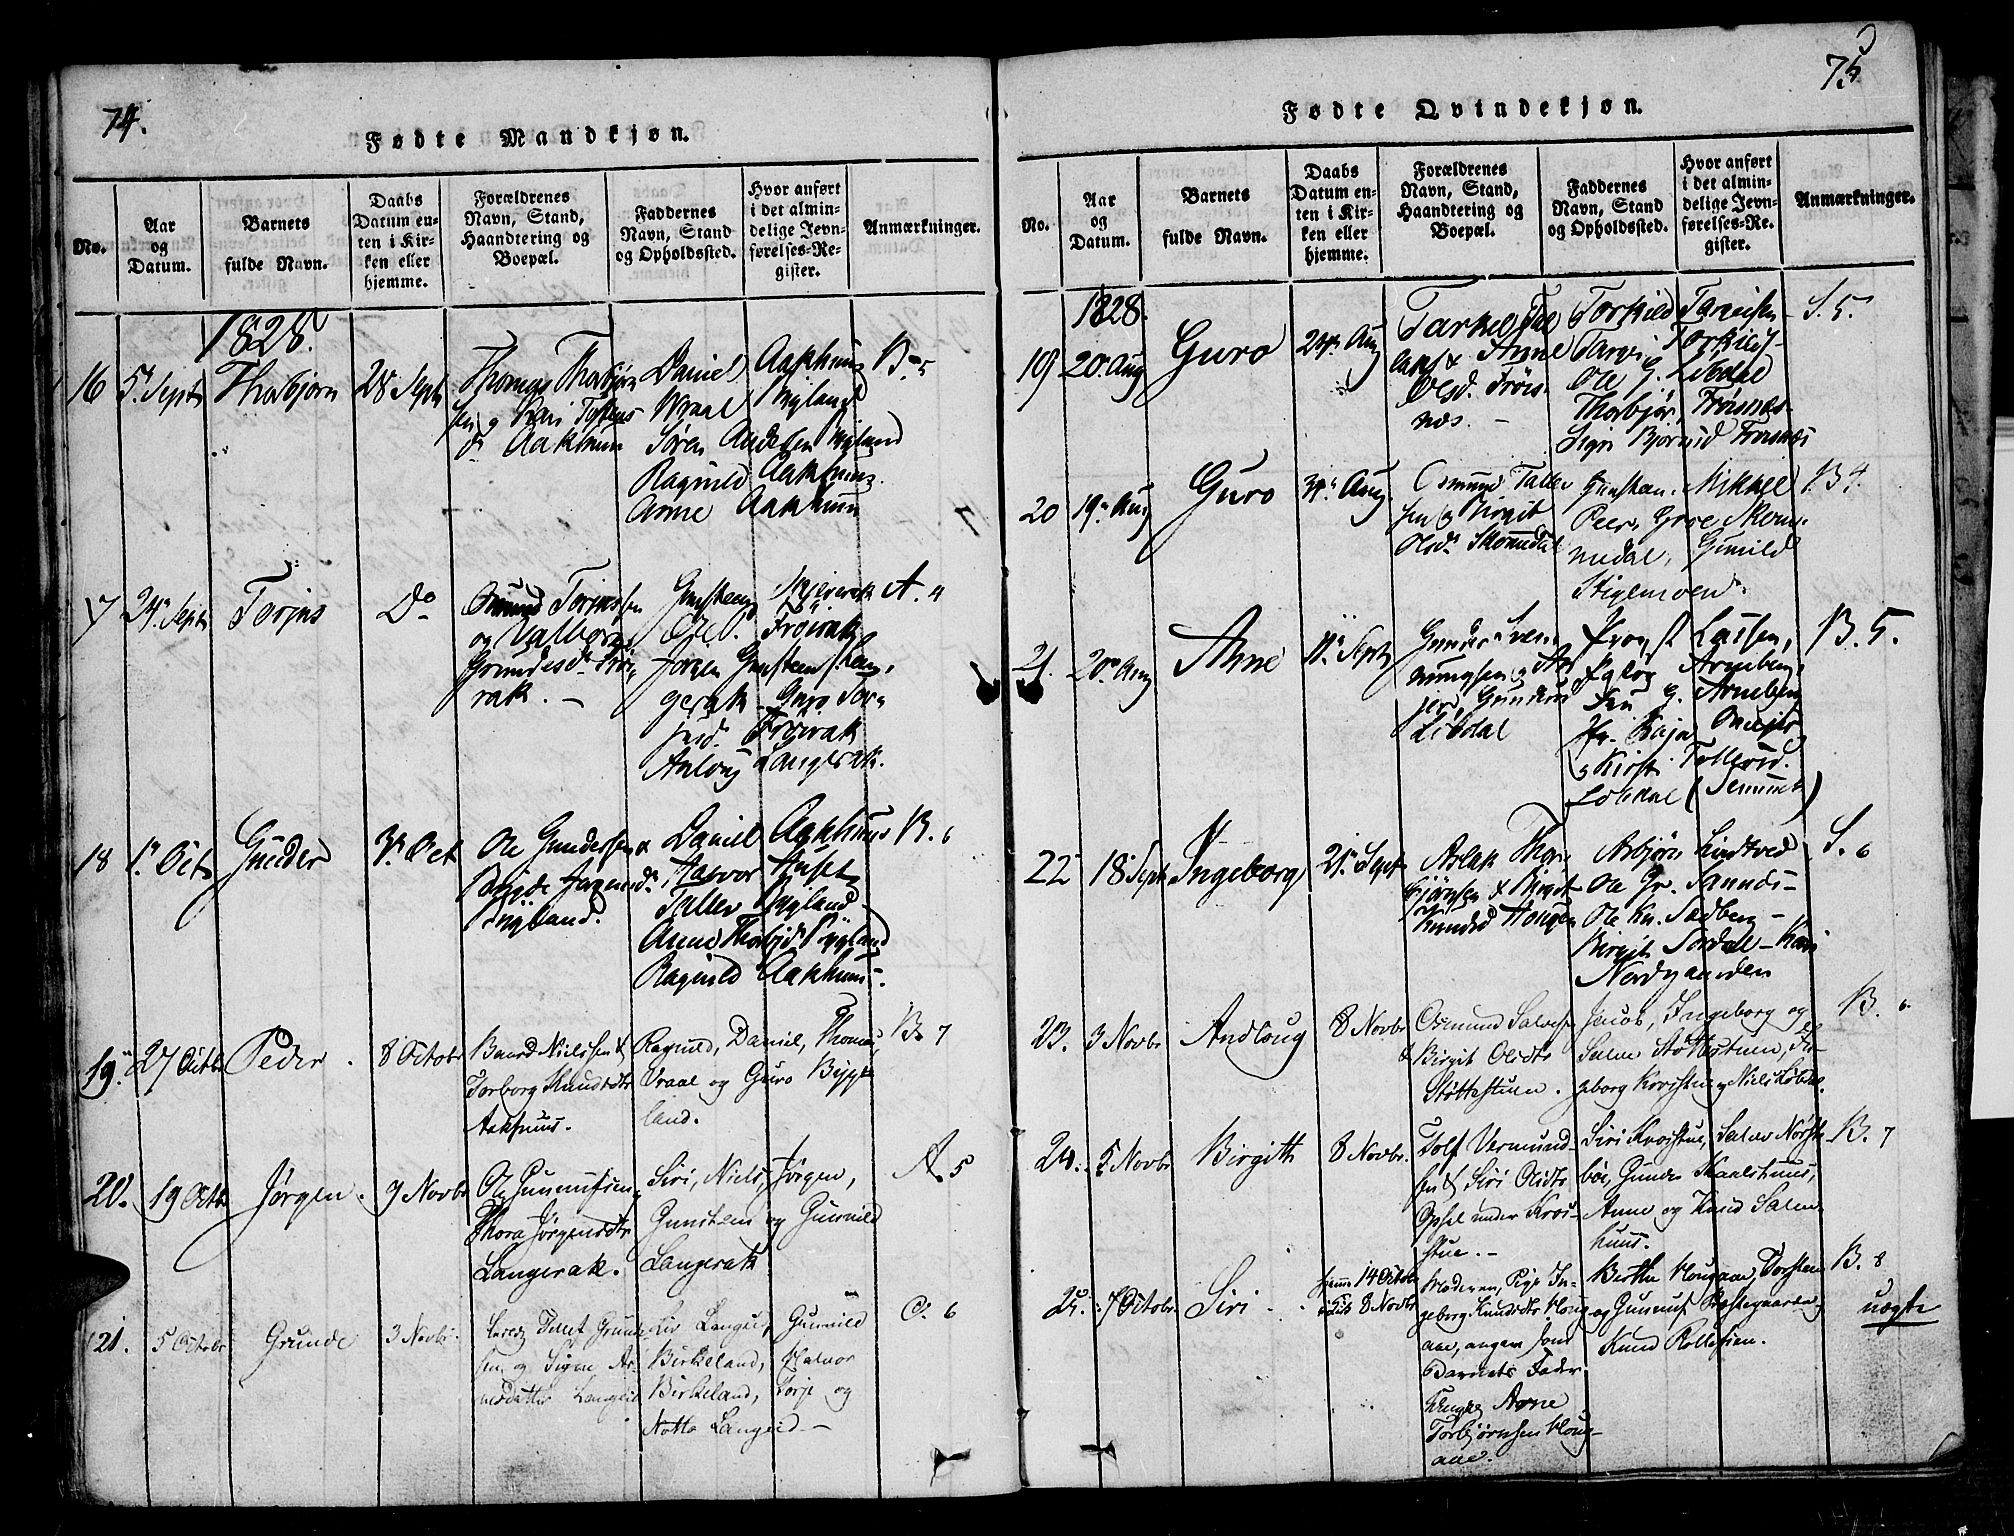 74.
Fødte Mandkjøn.
No.
Aar
og
Datum.
Barnets
fulde Navn.
Daabs
Datum en-
ten i Kir-
ken eller
hjemme.
Forældrenes
Navn, Stand,
Haandtering og
Boepæl.
Faddernes
Navn, Stand
og Opholdssted.
Hvor anført
i det almin-
delige Jevn-
førelses-Re-
gister.
Anmærkninger.
1828.
16
5 Septr
Thorbjørn
28 Septr
Thomas Thorbjørn
sen og Kari
dr Aakhuus
Daniel Aakhuus
Wraal Bygland
Søren Andersen Bygland
Ragnild Aakhuus
Anne Aakhuus
B. 5
17
21 Septr
Torjus
Do
Osmund Torjussen
og Valborg
Grundesdr Frøi-
rak. –
Gunsteen
Frøirak
Jørgen Gunsteens Lan-
gerak Guro Tor-
jusd. Frøirak
Asloug Langerak.
A. 4
18
1 Octr
Gunder
3 Oct
Ole Gundersen &
Jørgensdr
Bygland.
Daniel Aakhuus
Tallev Bygland
Anne Thorbjd Bygland
Ragnild Aakhuus
B. 6
19.
27 Octbr
Peder.
8 Octobr
Baard Nielssen &
Torborg Knudsdtr
Aakhuus.
Ragnild, Daniel, Thomas,
Vraal og Guro Bygge
land.
B. 7
20.
19 Octbr
Jørgen.
9 Novbr
Ole Gunnufsen,
Thora Jørgensdtr
Langerak.
Siri, Niels, Jørgen,
Gunstein og Gunnild
Langerak
A. 5
21.
5 Octobr
Grunde
3 Novbr.
Tellef Grunde
sen og Signe Ar-
nesdatter Langeid
Liv Langeid, Gunnild
Birkeland, Halvor
Birkeland, Torje og
Notto Langeid –
C. 6
75
Fødte Qvindekjøn.
No.
Aar
og
Datum.
Barnets
fulde Navn.
Daabs
Datum en-
ten i Kir-
ken eller
hjemme.
Forældrenes
Navn, Stand,
Haandtering og
Boepæl.
Faddernes
Navn, Stand
og Opholdssted.
Hvor anført
i det almin-
delige Jevn-
førelses-Re-
gister.
Anmærkninger.
1828.
19
20 Aug
Guro
24 Aug
Tarkel Tal
laks & Anne
Olsd. Frøis-
næs. –
Torkild Tarveisen
Tarvei Torkils-
Ole G. Libdal
Thorbjør. Frøisnæs-
Sigri Bjørnsd Frøisnæs
S. 5.
20
19 Aug
Guro
31 Aug
Osmund Tallev
sen og Birgit
Olsdr Skomedal
Gunstein. Mikkel
Peer, Groe Skom-
medal, Gunild
Stigemoen.
B 4.
21.
20 Aug
Anne
11 Septr
Gunder Sven-
Gundersd
Libdal
Provst Lassen,
Frue G. Arneberg
Jfr. Kaja
Kirsti Tellevsd.
Libdal
B. 5.
22
18 Septr
Ingeborg
21 Septr
Aslak Thor-
bjørnsen & Birgit
Knudsd Hougen
Asbjørn Lindtved
Ole Gr. Sannds-
Ole Kn. Sadberg –
Birgit Sordal – Kari
Nordgaarden
S. 6
23.
3 Novbr
Andloug
8 Novbr
Osmund Salvesen
& Birgit Olsdtr
Støttestuen.
Jacob, Ingeborg og
Salve Støttestuen, In-
geborg Krostuen, Niels Libdal.
B. 6.
24.
5 Novbr
Birgith
8 Novbr.
Tolf Vermund-
sen & Siri Olsdtr
Opsal under Kroi-
stue. –
Siri Kroistue, Salve Nørste-
bøe, Gunder Skaalshuus,
Anne og Knud Salen
huus.
B. 7
25.
7 Octobr.
Siri
14 Octobr
8 Novbr
Moderen, Pige In-
geborg Knudsdtr Houg
aae, angav som
Barnets Fader
Arne
Torbjørnsen Houg-
aae.
Berthe Hougaae, Torsten
og Gunnuf Præstegaarden,
Knud Rollefsen.
B. 8
uægte